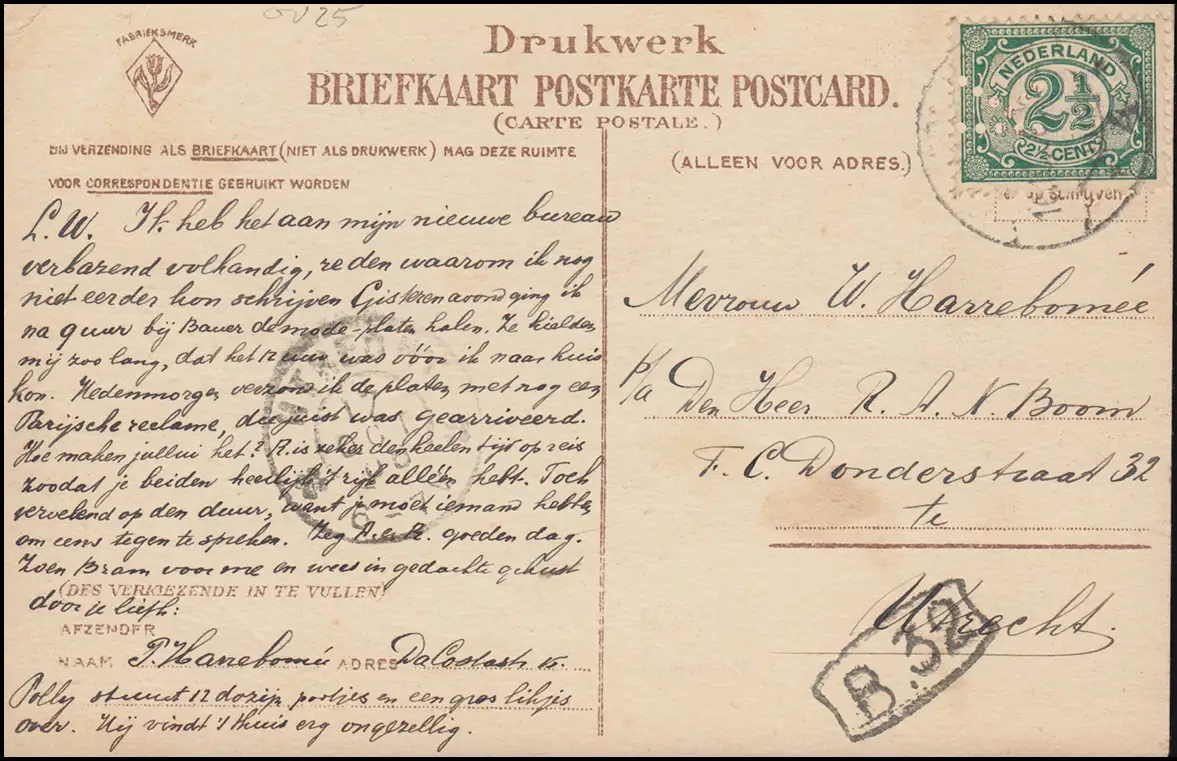 OV 25
FABRIEKSMERK
Drukwerk
BRIEFKAART POSTKARTE POSTCARD.
(CARTE POSTALE.)
BIJ VERZENDING ALS BRIEFKAART (NIET ALS DRUKWERK) MAG DEZE RUIMTE
VOOR CORRESPONDENTIE GEBRUIKT WORDEN
(ALLEEN VOOR ADRES.)
NEDERLAND
2½
2½ CENT
L. W. Ik heb het aan mijn nieuwe bureau
verbazend volhandig, reden waarom ik nog
niet eerder kon schrijven Gisterenavond ging ik
na 9 uur bij Bauer de mode-platen halen. Ze hielden
mij zoo lang, dat het 12 uur was vóór ik naar huis
kon. Hedenmorgen verzond ik de platen, met nog een
Parijsche reclame, die juist was gearriveerd.
Hoe maken jullui het? R. is zeker den heelen tijd op reis
zoodat je beiden heerlijk 't rijk alléén hebt. Toch
vervelend op den duur, want je moet iemand hebben
om eens tegen te spreken. Zeg A. en R. goeden dag.
Zoen Bram voor me en wees in gedachte gekust
(DES VERKIEZENDE IN TE VULLEN)
door je liefh:
AFZENDER
NAAM P. Harrebomée ADRES DaCostastr.
Polly stuurt 12 dozijn portjes en een gros likjes
over. Hij vindt 't thuis erg ongezellig.
Mevrouw W. Harrebomée
p/a Den Heer R. A. N. Boom
F. C. Donderstraat 32
te
Utrecht.
B. 32